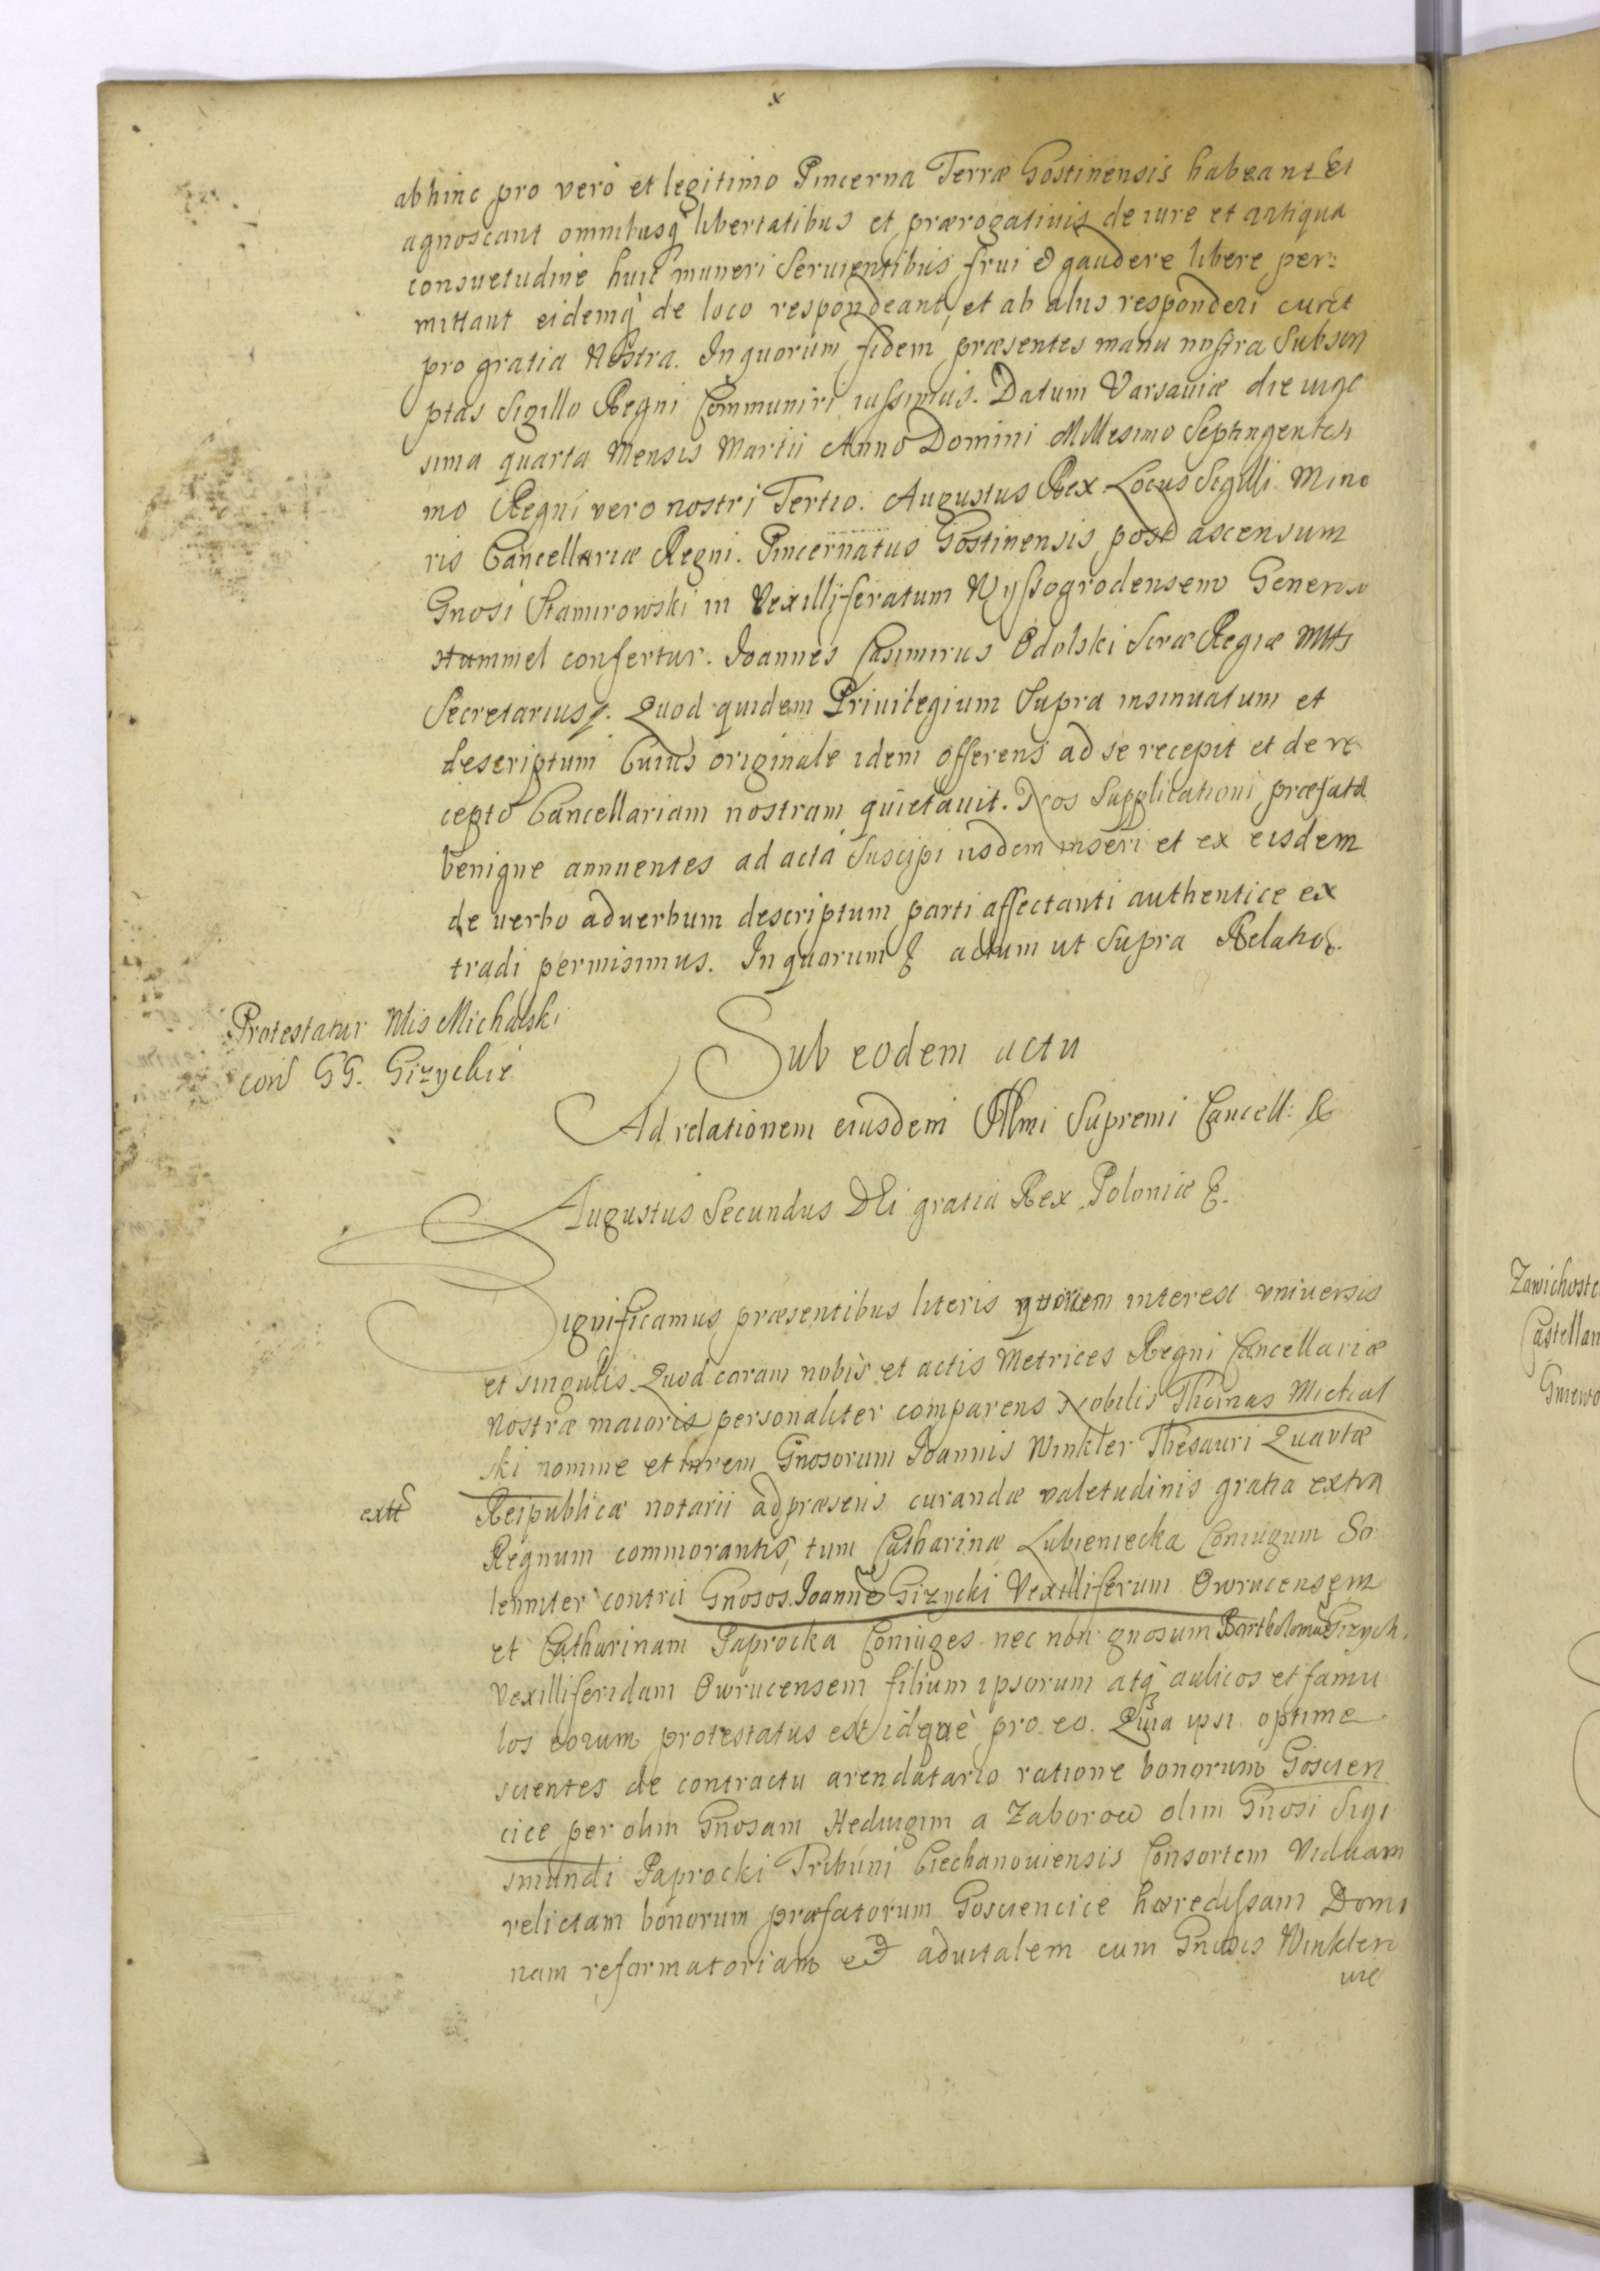 abhinc pro vero et legitimo Pincerna Terræ Gostinensis habeant et
agnoscant omnibusq libertatibus et prærogativis de iure et antiqua
consuetudine huic muneri servientibus frui et gaudere libere per:
mittant eidemq de loco respondeant, et ab aliis responderi curet
pro gratia Nostra. In quorum fidem præsentes manu nostra Subscri
ptas Sigillo Regni Communiri iussimus. Datum Varsaviæ die vige
sima quarta Mensis Martii Anno Domini Millesimo Septingentesi
mo Regni vero nostri Tertio. Augustus Rex. Locus Sigilli Mino
ris Cancellariæ Regni. Pincernatus Gostinensis post ascensum
Gnosi Stamirowski in Vexilliferatum Wyssogrodensem Generoso
Hummel confertur. Joannes Casimirus Odolski Scræ Regiæ Mttis
Secretarius. Quod quidem Privilegium Supra insinuatum et
descriptum Cuius originale idem offerens ad se recepit et de re
cepto Cancellariam nostram quietavit. Nos Supplicationi præfata
benigne annuentes ad acta Suscipi iisdem inseri et ex eisdem
de verbo adverbum descriptum parti affectanti authentice ex
tradi permisimus. In quorum & actum ut Supra Relatio.
Protestatur Mis Michalski
con GG. Gizyckie
Sub eodem actu
Ad relationem eiusdem Illmi Supremi Cancell: R
Augustus Secundus DEi gratia Rex Poloniæ &.
Significamus præsentibus literis quorum interest universis
et singulis. Quod coram nobis et actis Metrices Regni Cancellariæ
Nostræ maioris personaliter comparens Nobilis Thomas Michal
ski nomine et Gnosorum Joannis Winkler Thesauri Quartæ
extt
Reipublicæ notarii adpræsens curandæ valetudinis gratia extra
Regnum commorantis, tum Catharinæ Lubieniecka Coniugum So
lenniter contra Gnosos. Joanne Gizycki Vexilliferum Owrucensem
et Catharinam Paprocka Coniuges nec non gnosum Bartholomæ Gizych.
Vexilliferidam Owrucensem filium ipsorum atq aulicos et famu
los eorum protestatus est idque pro eo. Quia ipsi optime
scientes de contractu arendatario ratione bonorum Goscien
cice per olim Gnosam Hedvigim a Zaborow olim Gnosi Sigi
smundi Paprocki Tribuni Ciechanoviensis Consortem Viduam
relictam bonorum præfatorum Gosciencice hæredissam Domi
nam reformatoriam et advitalem cum Gnosis Winkler
Zawichoste
Castellan
Gniewo